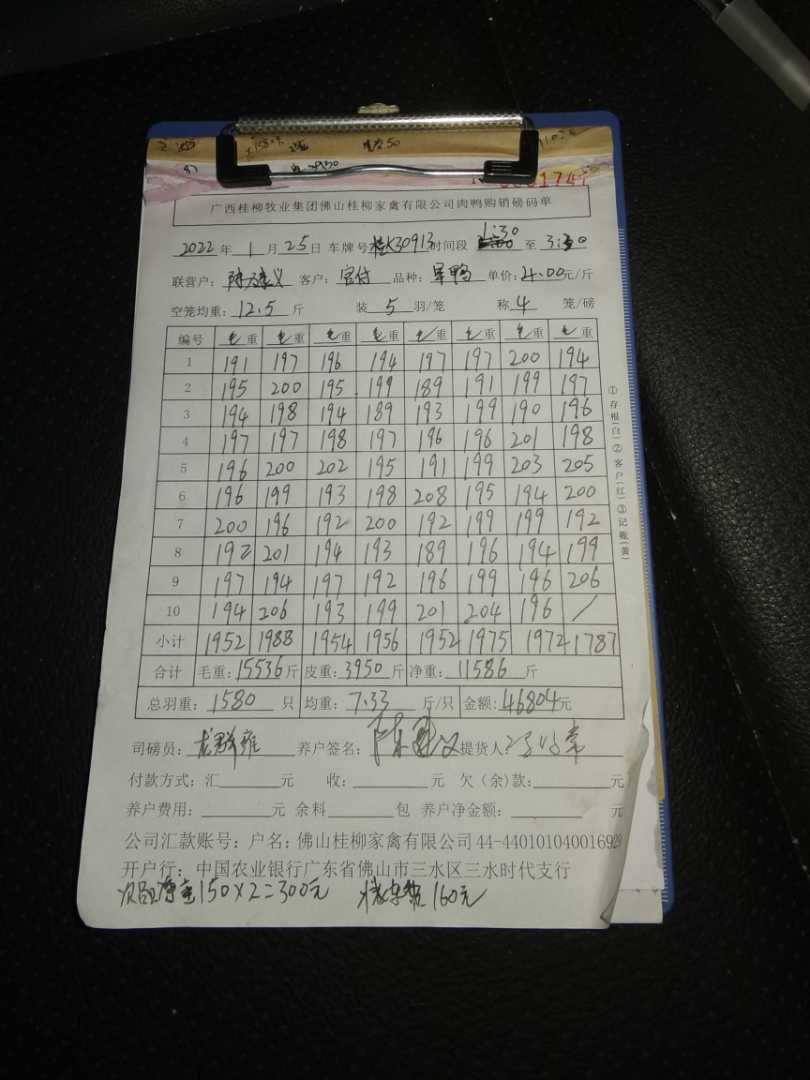 50
广西桂柳牧业集团佛山桂柳家禽有限公司肉鸭购销磅码单
2022年 1月25日 车牌号桂K30913时间段 1:30 至 3:30
联营户: 客户: 品种: 单价:4.00元/斤
空笼均重:12.5斤 装 5 羽/笼 称 4 笼/磅
编号 毛重 毛重 毛重 毛重 毛重 毛重 毛重 毛重
1 191 197 196 194 197 197 200 194
2 195 200 195 199 189 191 199 197
3 194 198 194 189 193 199 190 196
4 197 197 198 197 196 196 201 198
5 196 200 202 195 191 199 203 205
6 196 199 193 198 208 195 194 200
7 200 196 192 200 192 199 199 192
8 192 201 194 193 189 196 194 199
9 197 194 197 192 196 199 196 206
10 194 206 193 199 201 204 196 /
小计 1952 1988 1954 1956 1952 1975 1972 1787
合计 毛重:15536斤 皮重:3950斤 净重:11586斤
总羽重:1580只 均重:7.33斤/只 金额:46804元
司磅员: 养户签名: 提货人:
付款方式:汇 元 收: 元 欠(余)款: 元
养户费用: 元 余料 包 养户净金额: 元
公司汇款账号:户名:佛山桂柳家禽有限公司44-440101040016929
开户行:中国农业银行广东省佛山市三水区三水时代支行
150×2=300元 160元
①存根(白)②客户(红)③记账(黄)